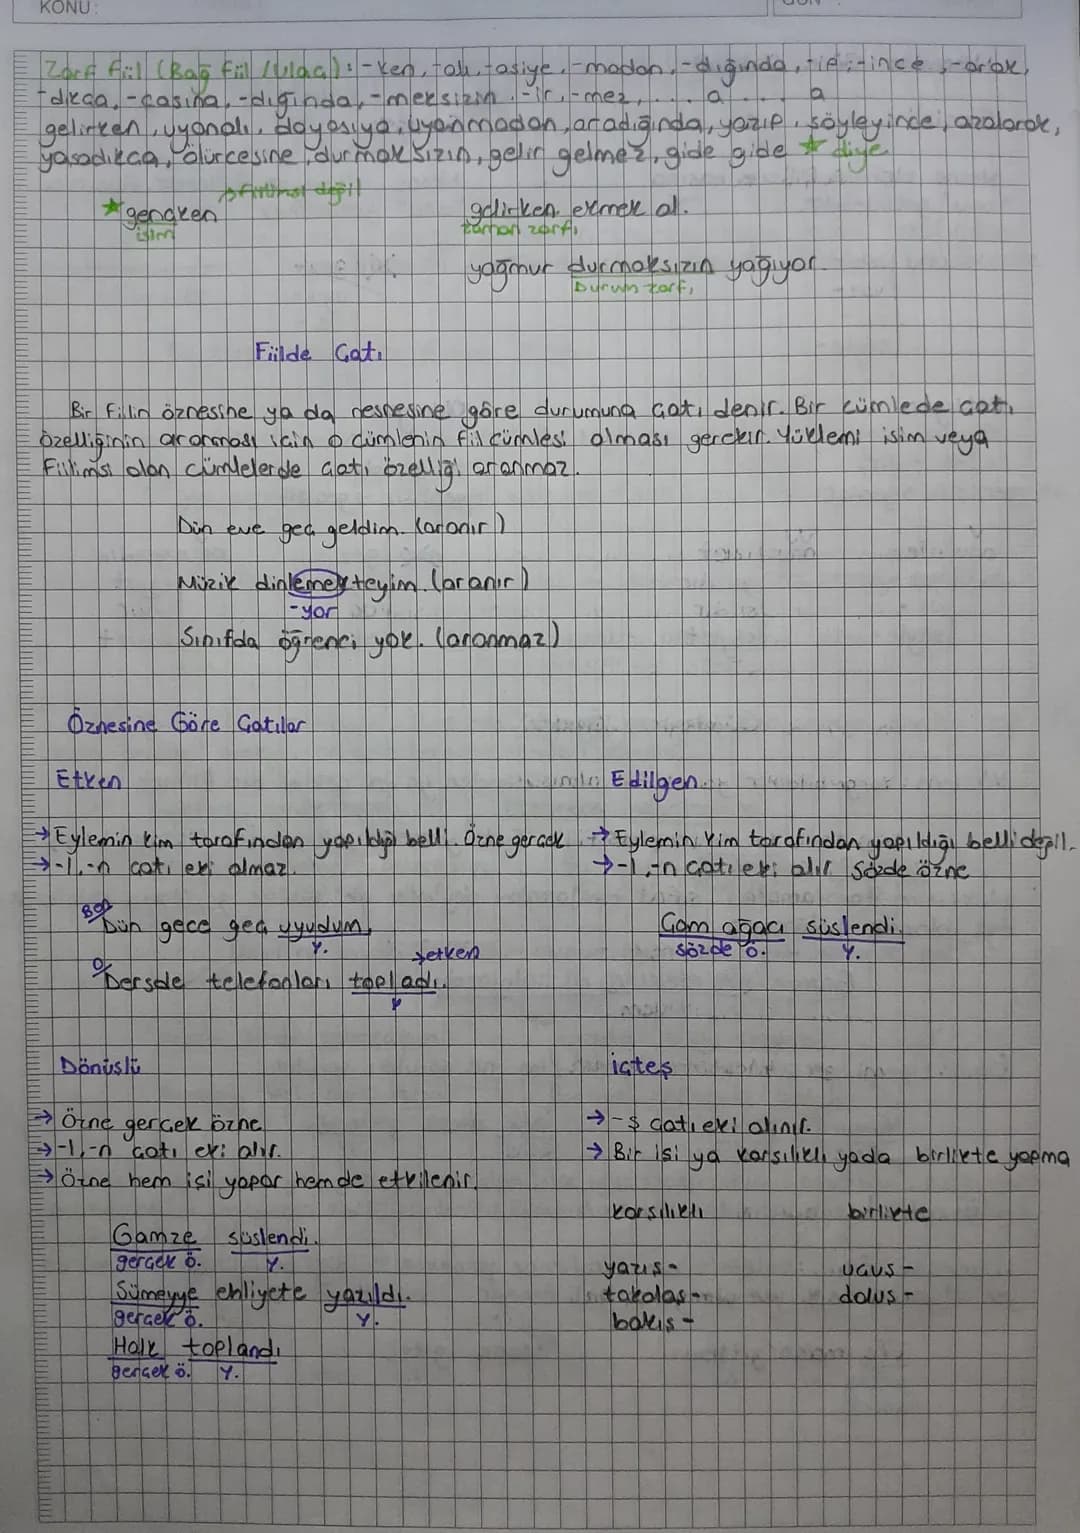 KONU:
Zarf fiil (Bağ fiil /Ulaç): -ken, -alı, -asiye, -madan, -dığında, -ip, -ince, -arak,
-dıkça, -casına, -dığında, -meksizin, -ir, -mez, ... a ... a
gelirken, uyanalı, doyasıya, uyanmadan, aradığında, yazıp, söyleyince, azalarak,
yaşadıkça, ölürcesine, durmaksızın, gelir gelmez, gide gide ★ diye
fiilimsi değil
★ gençken gelirken ekmek al.
isim zaman zarfı
yağmur durmaksızın yağıyor.
Durum zarfı
Fiilde Çatı
Bir fiilin öznesine ya da nesnesine göre durumuna çatı denir. Bir cümlede çatı
özelliğinin aranması için o cümlenin fiil cümlesi olması gerekir. Yüklemi isim veya
Fiilimsi olan cümlelerde çatı özelliği aranmaz.
Dün eve geç geldim. (aranır)
Müzik dinlemekteyim. (aranır)
-yor
Sınıfda öğrenci yok. (aranmaz)
Öznesine Göre Çatılar
Etken Edilgen
→ Eylemin kim tarafından yapıldığı belli. Özne gerçek → Eylemin kim tarafından yapıldığı belli değil.
→ -l, -n çatı eki almaz. → -l, -n çatı eki alır Sözde özne
Ben
Dün gece geç uyudum. Çam ağacı süslendi.
Y. sözde ö. Y.
→etken
O
Dersde telefonları topladı.
Y
Dönüşlü İşteş
→ Özne gerçek özne → -ş çatı eki alınır.
→ -l, -n çatı eki alır. → Bir işi ya karşılıklı yada birlikte yapma
→ Özne hem işi yapar hem de etkilenir.
karşılıklı birlikte
Gamze süslendi.
gerçek ö. Y. yazış- uçuş-
Sümeyye ehliyete yazıldı. tokalaş- doluş-
gerçek ö. Y. bakış-
Halk toplandı
gerçek ö. Y.